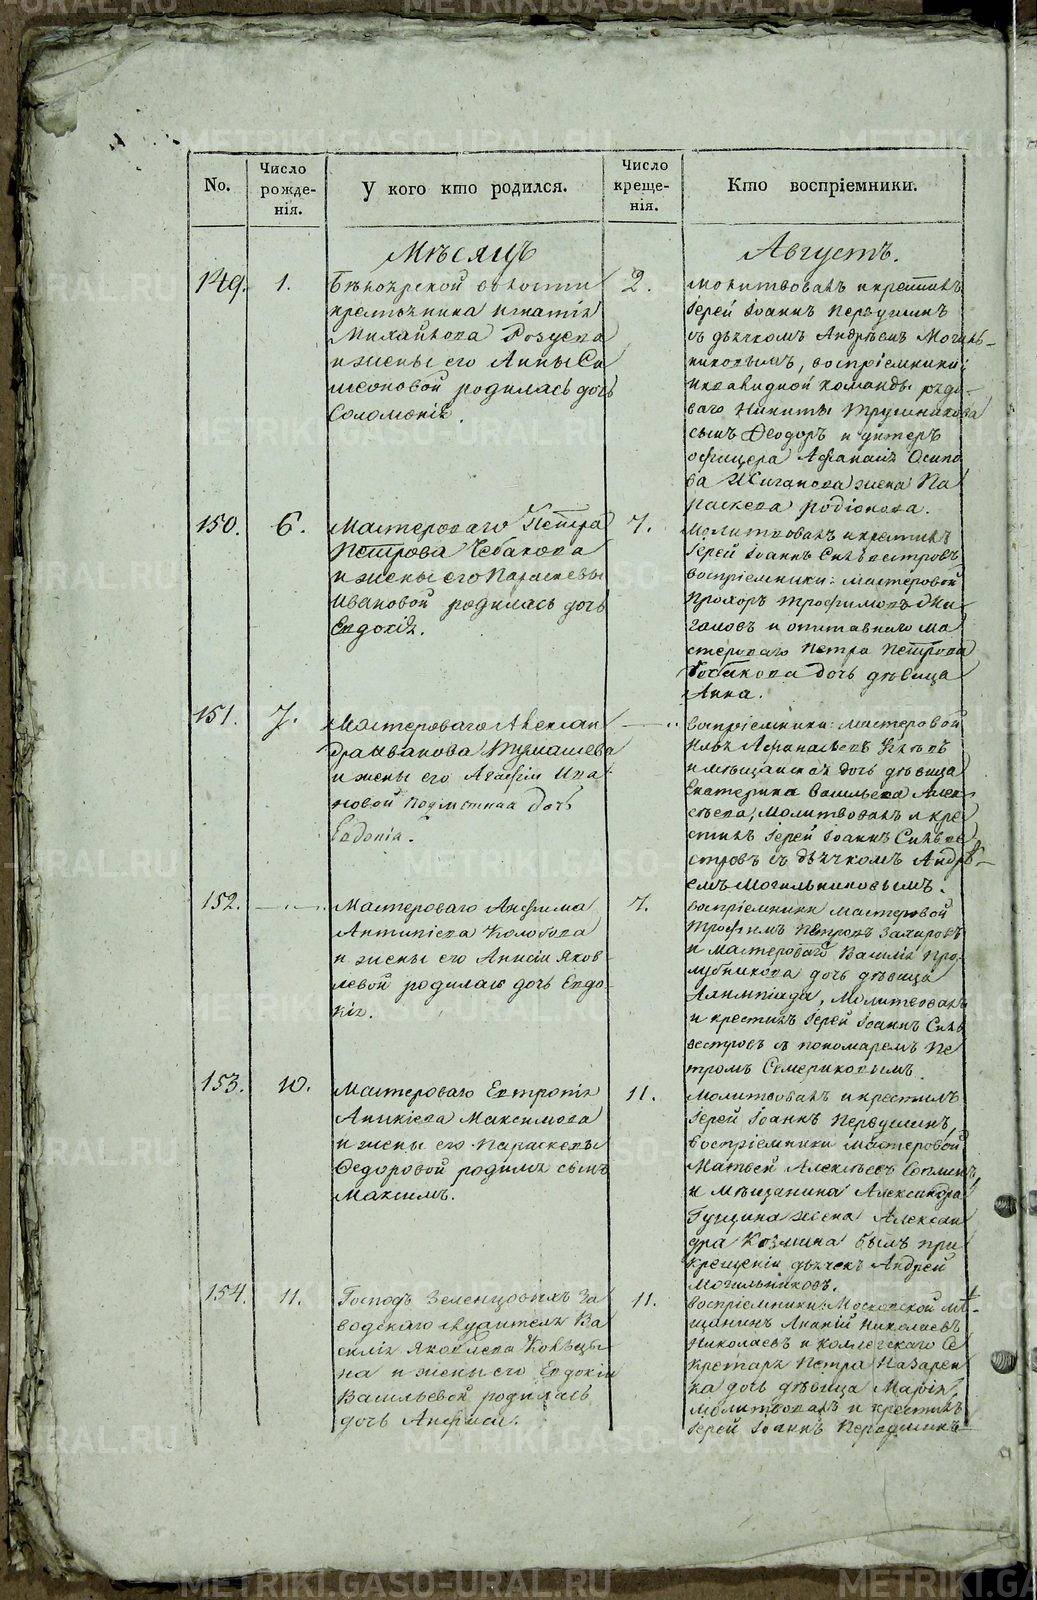 METRIKI.GASO-URAL.RU
No.
Число рожде-нія.
У кого кто родился.
Число креще-нія.
Кто воспріемники.
Мѣсяцъ
Августъ.
149.
1.
Бѣлоярской волости
крестьянина Игнатія
Михайлова
и жены его Анны Си
меоновой родилась дочь
Соломонія.
2.
молитвовалъ и крестилъ
Іерей Іоаннъ Передушинъ
съ дьячкомъ Андреемъ Могиль-
никовымъ, воспріемники:
инвалидной команды рядо-
ваго Никиты Трушникова
сынъ Ѳеодоръ и унтеръ
офицера Афанасія Осипо
ва Жиганова жена Па
раскева Родіонова.
150.
6.
Мастероваго Петра
Петрова Чебакова
и жены его Параскевы
Ивановой родилась дочь
Евдокія.
7.
Молитвовалъ и крестилъ
Іерей Іоаннъ Сильвестровъ
воспріемники: мастеровой
Прохоръ Трофимовъ Жи
галовъ и отставнаго ма
стероваго Петра Петрова
дочь дѣвица
Анна.
151.
7.
Мастероваго Алексан
дра Иванова Турнашева
и жены его Агафіи Ива
новой дочь
Евдокія.
— „
воспріемники: мастеровой
Илья Афанасьевъ
и мѣщанская дочь дѣвица
Екатерина Васильева Алек
сѣева, Молитвовалъ и кре
стилъ Іерей Іоаннъ Сильве
стровъ съ дьячкомъ Андрѣ-
емъ Могильниковымъ.
152.
— „
Мастероваго Анфима
Антипіева Колобова
и жены его Анисіи Яков
левой родилась дочь Евдо
кія.
7.
воспріемники мастеровой
Трофимъ Петровъ Захаровъ
и мастероваго Василія Про
лубникова дочь дѣвица
Алимпіада, Молитвовалъ
и крестилъ Іерей Іоаннъ Силь
вестровъ съ пономаремъ Пе
тромъ Семериковымъ.
153.
10.
Мастероваго Евтропія
Аникіева Максимова
и жены его Параскевы
Ѳедоровой родился сынъ
Максимъ.
11.
Молитвовалъ и крестилъ
Іерей Іоаннъ Передушинъ,
воспріемники мастеровой
Матвей Алексѣевъ
и мѣщанина Александра
Гущина жена Алексан
дра Козмина былъ при
крещеніи дьячекъ Андрей
Могильниковъ.
154.
11.
Господъ Зеленцовыхъ За
водскаго служителя Ва
силія Яковлева Ковыцы
на и жены его Евдокіи
Васильевой родилась
дочь Анфиса.
11.
воспріемники: Московской мѣ-
щанинъ Ананій Николаевъ
Николаевъ и коллежскаго Се
кретаря Петра Назарен
ка дочь дѣвица Марія,
Молитвовалъ и крестилъ
Іерей Іоаннъ Передушинъ